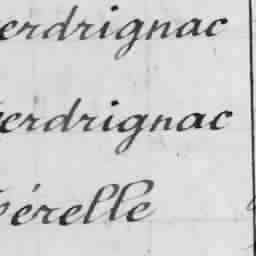 erdrignac
erdrignac
érelle